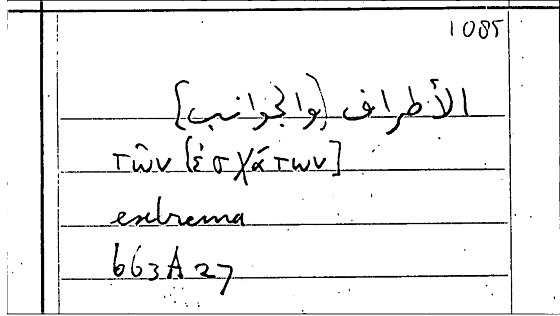 1085
الأطراف [والجوانب]
τῶν [ἐσχάτων]
extrema
663A27